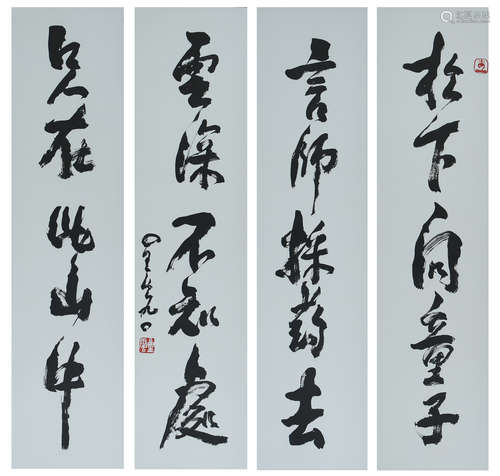 松下问童子
言師採药去
只在此山中
雲深不知處